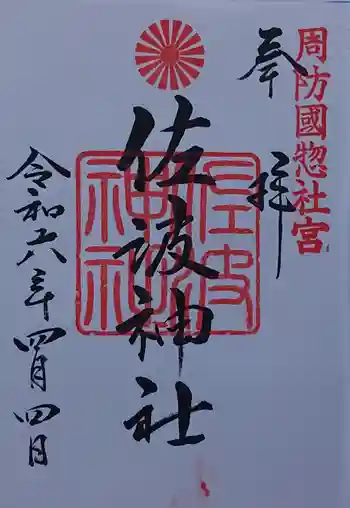 周防國惣社宮
奉拝
佐波神社
佐波神社
令和六年四月四日